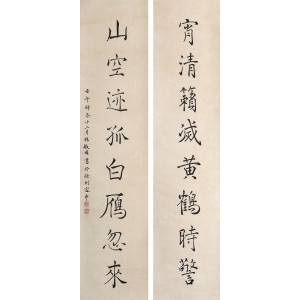 宵清籟滅黄鶴時警
山空迹孤白鴈忽來